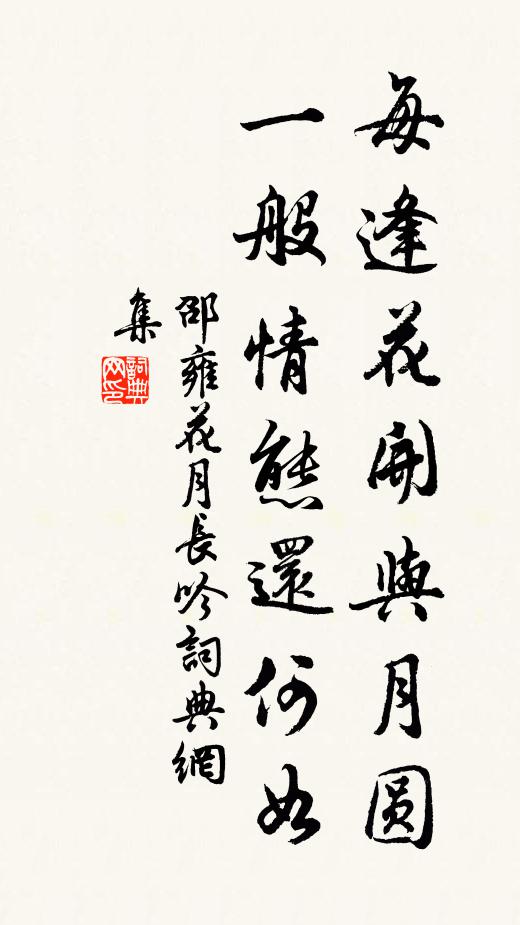 每逢花開與月圆
一般情態還何如
邵雍花月長吟詞典網
集
詞典
网印